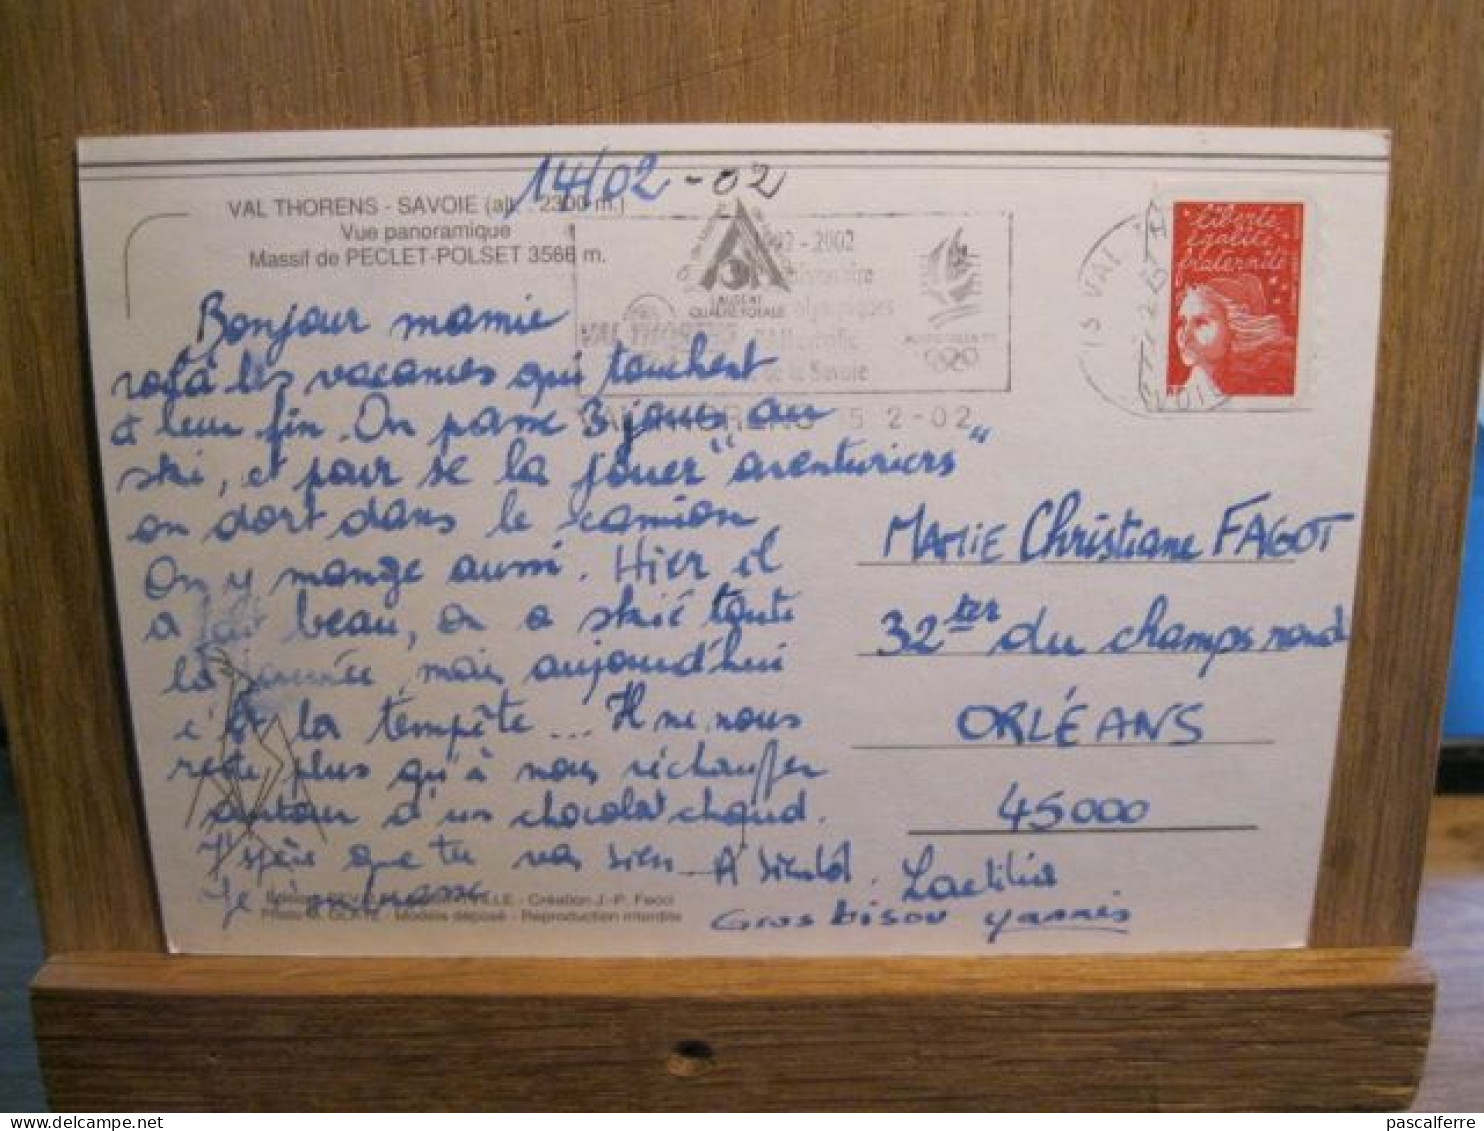 14/02-02
VAL THORENS - SAVOIE (alt. : 2300 m.)
Vue panoramique
Massif de PECLET-POLSET 3566 m.
- 2002
QUALITE TOTALE
olympiques
VAL THORENS
de la Savoie
5 2-02
liberté
égalité
fraternité
15 VAL
Bonjour mamie
voçà les vacances qui touchent
à leur fin. On passe 3 jours au
ski, et pour se la jouer "aventuriers"
on dort dans le camion
On y mange aussi. Hier il
a fait beau, on a skié toute
la journée, mais aujourd'hui
c'est la tempête... Il ne nous
reste plus qu'à nous réchauffer
autour d'un chocolat chaud.
J'espère que tu vas bien. A bientôt. Laetitia
Je
Gros bisou Yannis
MAMIE Christiane FAGOT
32 ter du champs rond
ORLÉANS
45000
- Création J.-P. Facci
- Modèle déposé - Reproduction interdite
pascalferre